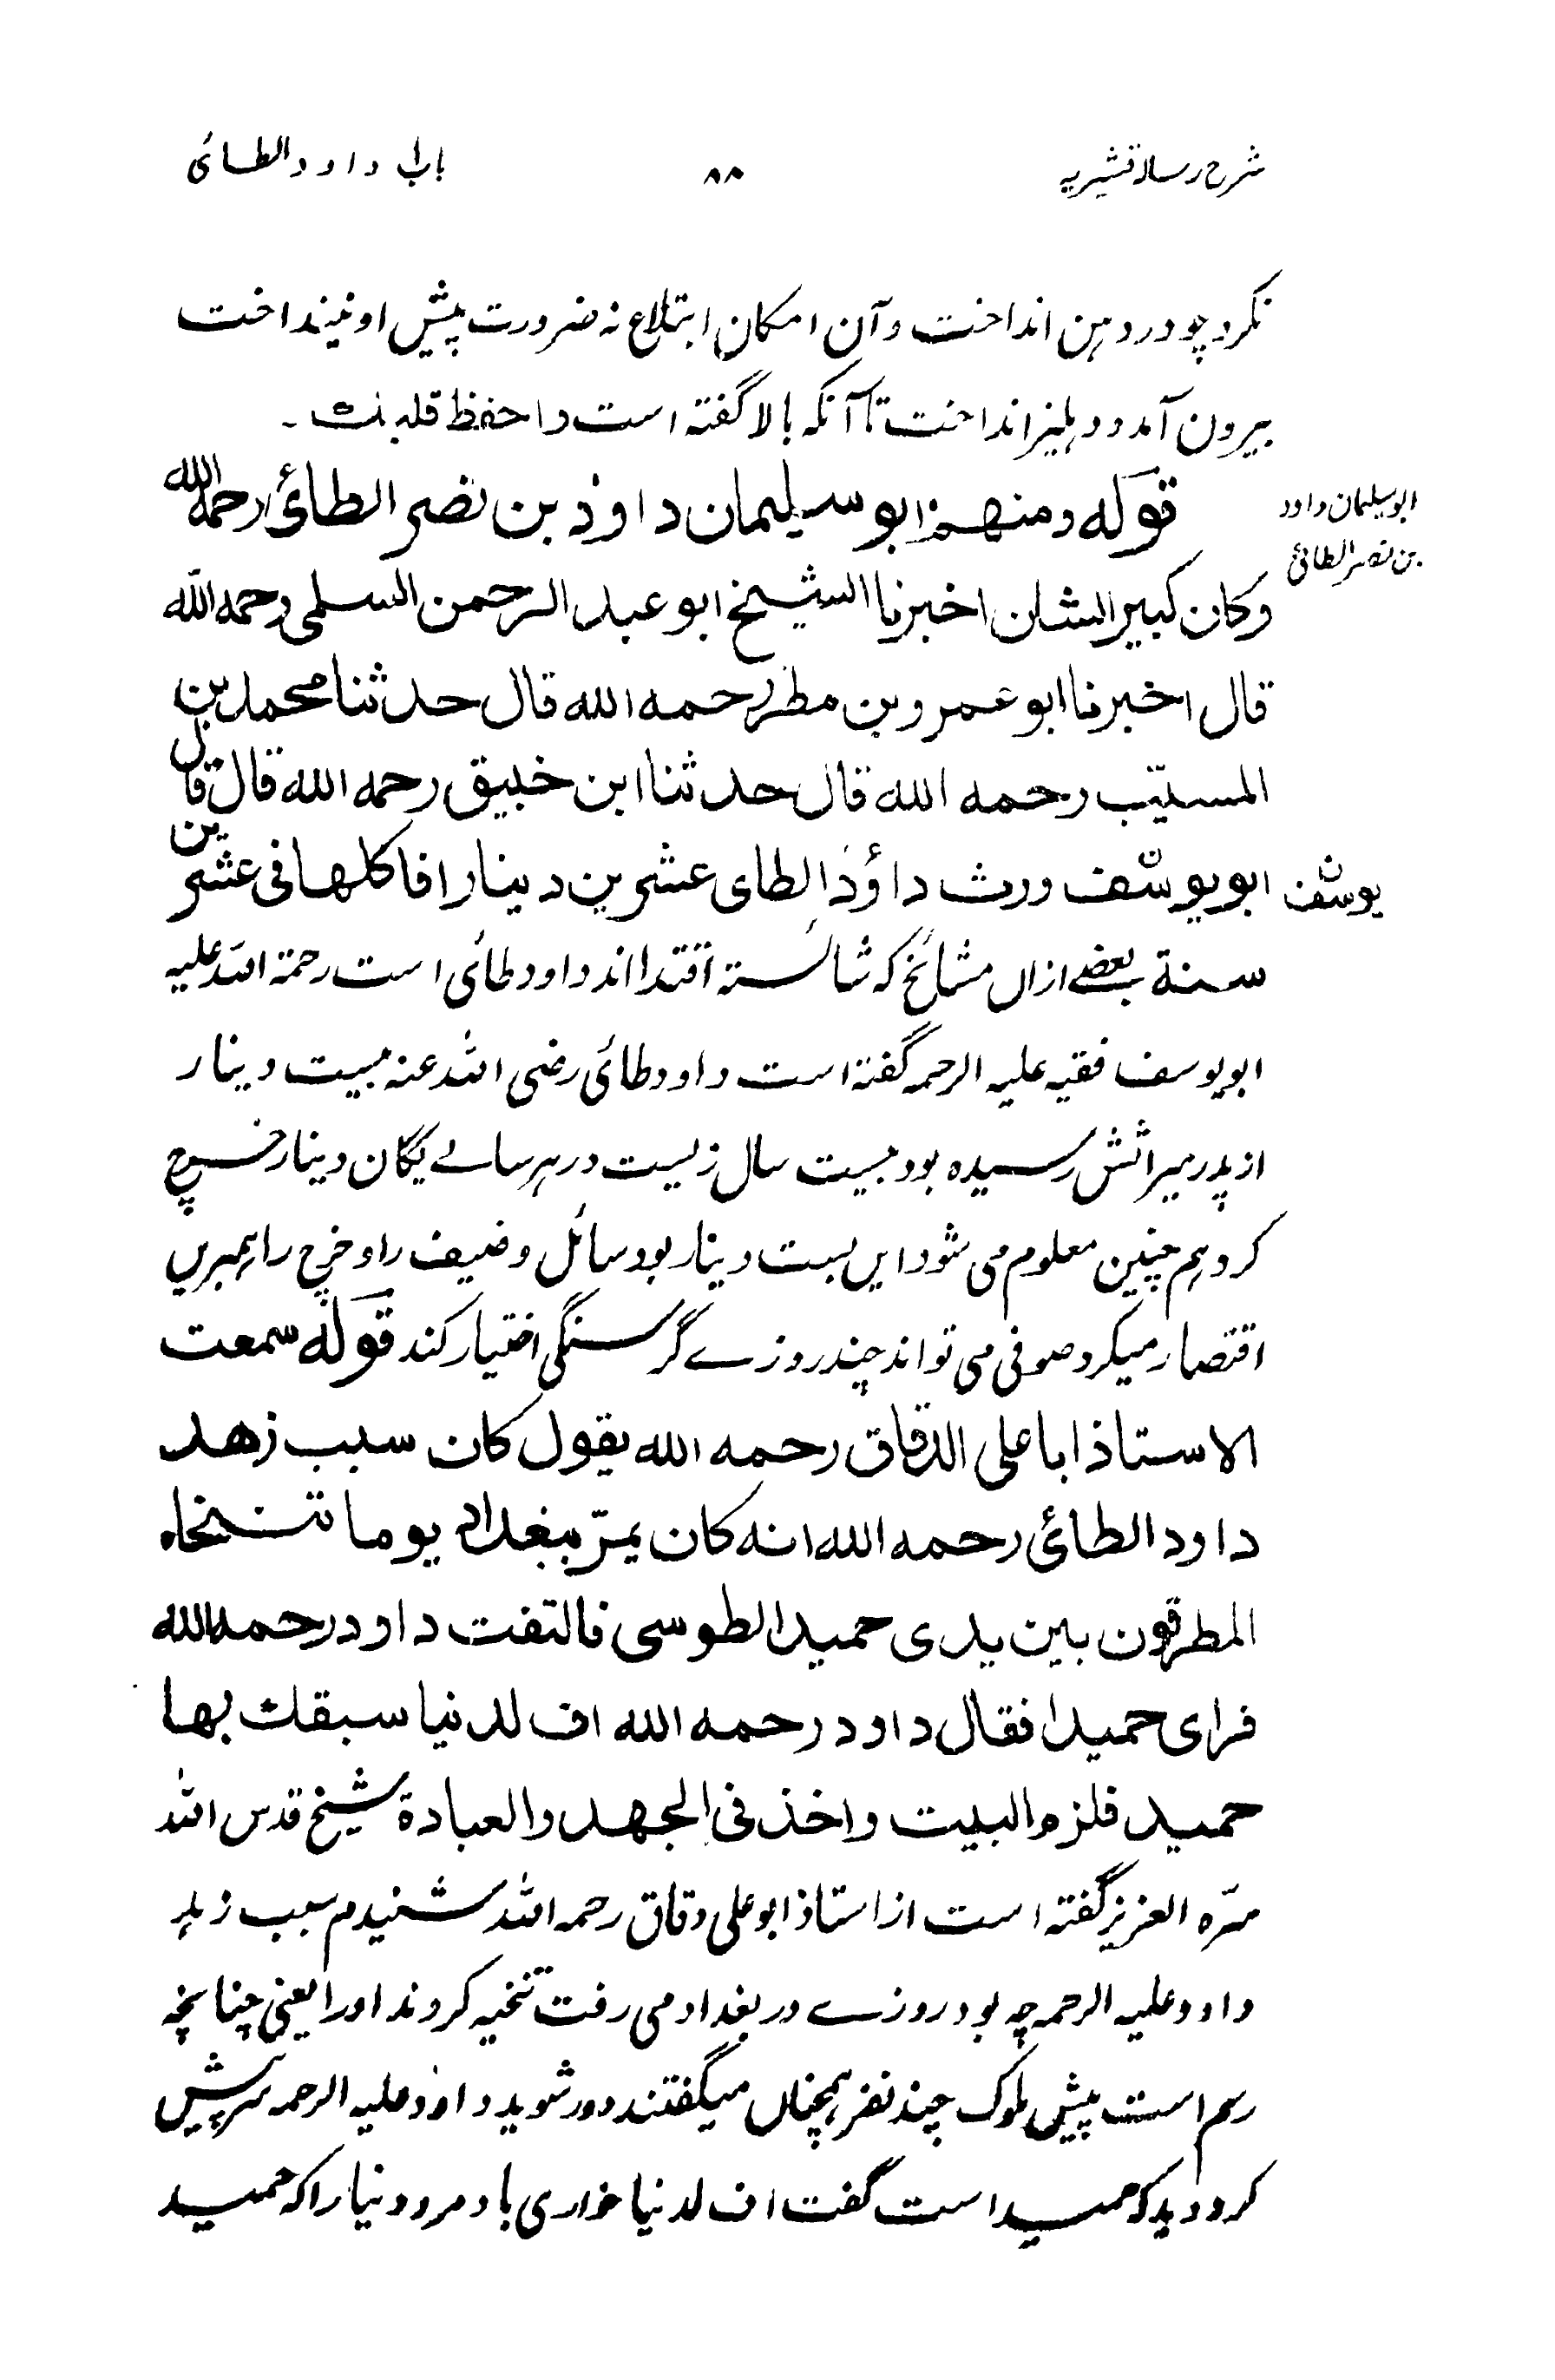 شرح رسالہ قشیریہ
۸۸
باب داود الطائی
نکرد چو در دہن انداخت و آن امکان ابتلاع نہ ضرورت پیش او نینداخت
بیرون آمد و دہلیز انداخت تا آنکہ بالا گفتہ است داحفظ قلبك۔
قوله ومنهم ابو سلیمان داوذ بن نصر الطائی رحمه الله
ابو سلیمان داود
بن نصر الطائی
وکان کبیر الشان اخبرنا الشیخ ابو عبد الرحمن السلمی رحمه الله
قال اخبرنا ابو عمرو بن مطر رحمه الله قال حدثنا محمد بن
المسیّب رحمه الله قال حدثنا ابن خبیق رحمه الله قال قال
یوسف ابو یوسف ورث داؤد الطای عشرین دینارا فاکلها فی عشرین
سنة بعضے ازاں مشائخ کہ شائستہ اقتدا اند داود طائی است رحمة اللہ علیہ
ابو یوسف فقیہ علیہ الرحمہ گفتہ است داود طائی رضی اللہ عنہ بیست دینار
از پدر میراثش رسیدہ بود بیست سال زیست در ہر سالے یگان دینار خرچ
کرد ہم چنین معلوم می شود ایں بست دینار بود سائل و ضیف را و خرچ را ہمبریں
اقتصار میکرد صوفی می تواند چند روزے گرسنگی اختیار کند قوله سمعت
الاستاذ ابا علی الدقاق رحمه الله یقول کان سبب زهد
داود الطائی رحمه الله انه کان یمرّ ببغداد یوما تنحاه
المطرقون بین یدی حمید الطوسی فالتفت داود رحمه الله
فرای حمیدا فقال داود رحمه الله اف لدنیا سبقك بها
حمید فلزم البیت واخذ فی الجهد والعبادة شیخ قدس اللہ
سرّہ العزیز گفتہ است از استاذ ابو علی دقاق رحمہ اللہ شنیدم سبب زہد
داود علیہ الرحمہ چہ بود روزے در بغداد می رفت تنحیہ کردند اورا یعنی چنانچہ
رسم است پیش ملوک چند نفر ہمچناں میگفتند دور شوید داود علیہ الرحمہ سر پیش
کرد دید کہ حمید است گفت اف لدنیا خواری باد مرد دنیا را کہ حمید